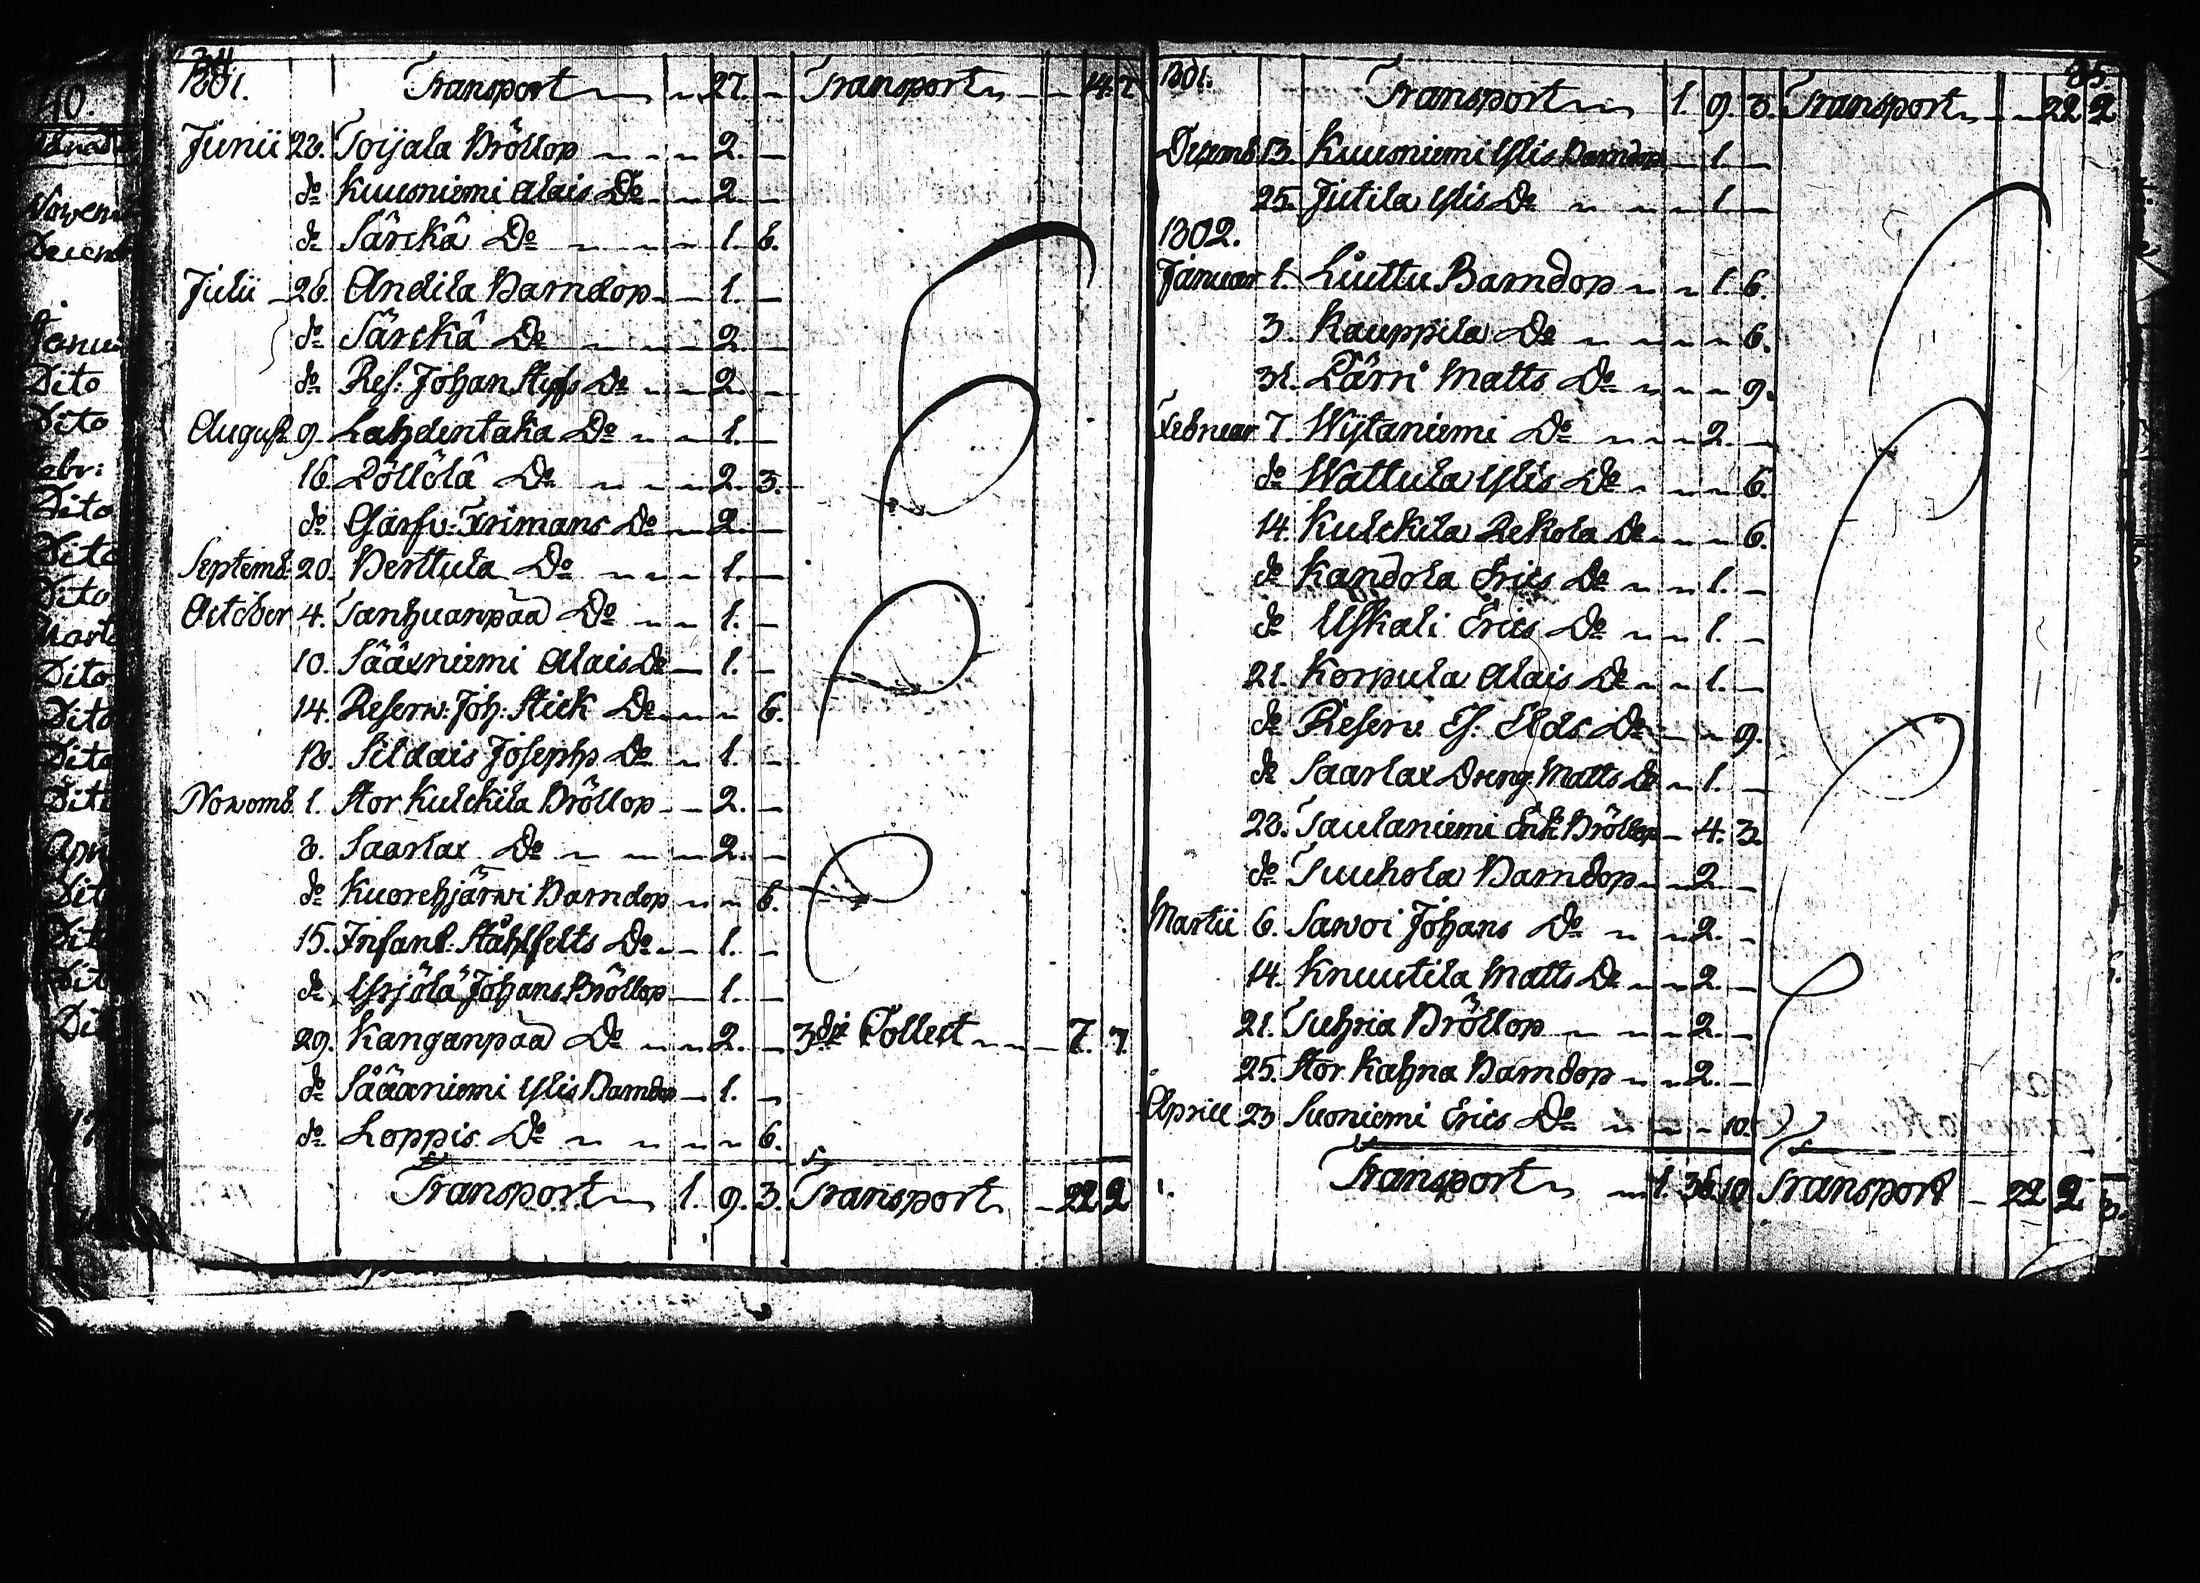 34
1801. Transport 27. Transport 14. 7.
Junii 22. Toijala Bröllop 2.
do Kuusniemi Alais Do 2.
do Särckä Do 1. 6.
Julii 26. Andila Barndop 1.
do Särckä Do 2.
do Res: Johan Do 2.
August 9. Lahdentaka Do 1.
16. Pöllölä Do 2. 3.
do Do 2.
Septemb. 20. Perttula Do 1.
October 4. Tanhuanpää Do 1.
10. Sääxniemi Alais Do 1.
14. Reserv: Joh: Stick Do 6.
18. Sildais Josephs Do 1.
Novemb. 1. Stor Kulckila Bröllop 2.
8. Saarlax Do 2.
do Kuorehjärwi Barndop 6.
15. Infant: Ståhlfelts Do 1.
do Yrjölä Johans Bröllop 1.
29. Kanganpää Do 2. 3die Collect 7. 7.
do Sääxniemi Ylis Barndop 1.
do Loppis Do 6.
Transport 1. 9. 3. Transport 22 2
35
1801. Transport 1. 9. 3. Transport 22 2
Decemb. 13. Kuusniemi Ylis Barndop 1.
25. Jutila Ylis Do 1.
1802.
Januar 1. Luttu Barndop 1. 6.
3. Kauppila Do 6.
31. Pärri Matts Do 9.
Februar 7. Wijtaniemi Do 2.
do Wattula Ylis Do 6.
14. Kulckila Rekola Do 6.
do Kandola Erics Do 1.
do Uskali Erics Do 1.
21. Korpula Alais Do 1.
do Reserv. Do 9.
do Saarlax Dreng Matts Do 1.
28. Taulaniemi Bröllop 4. 3.
do Tuuhola Barndop 2.
Martii 6. Sawoi Johans Do 2.
14. Knuutila Matts Do 2.
21. Tuhria Bröllop 2.
25. Stor Kahna Barndop 2.
Aprill 23 Suoniemi Erics Do 10.
Transport 1. 36. 10 Transport 22 2
40.
Dito
Dito
Dito
Dito
Dito
Dito
Dito
Dito